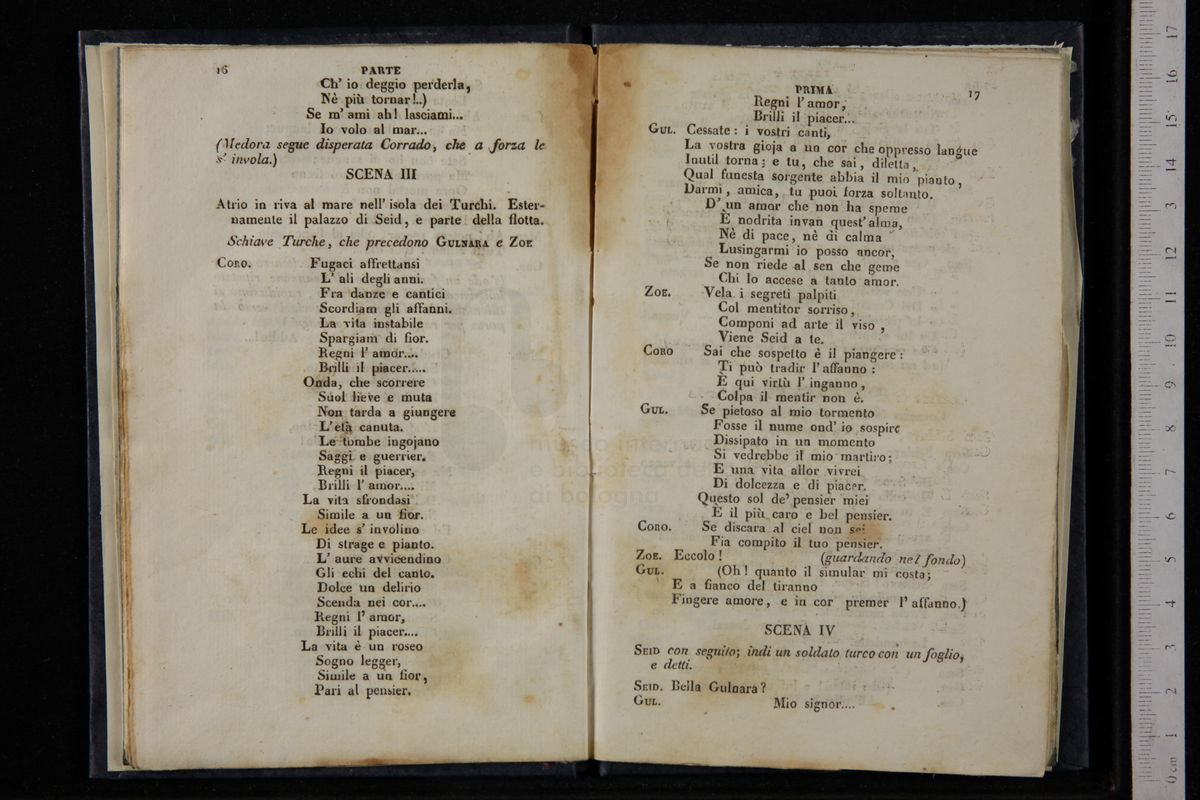 16
PARTE
Ch' io deggio perderla,
Nè più tornar!..)
Se m' ami ah! lasciami...
Io volo al mar...
(Medora segue disperata Corrado, che a forza le
s' invola.)
SCENA III
Atrio in riva al mare nell' isola dei Turchi. Ester-
namente il palazzo di Seid, e parte della flotta.
Schiave Turche, che precedono GULNARA e ZOE
CORO. Fugaci affrettansi
L' ali degli anni.
Fra danze e cantici
Scordiam gli affanni.
La vita instabile
Spargiam di fior.
Regni l' amor....
Brilli il piacer.....
Onda, che scorrere
Suol lieve e muta
Non tarda a giungere
L' età canuta.
Le tombe ingojano
Saggi e guerrier.
Regni il piacer,
Brilli l' amor....
La vita sfrondasi
Simile a un fior.
Le idee s' involino
Di strage e pianto.
L' aure avvicendino
Gli echi del canto.
Dolce un delirio
Scenda nei cor....
Regni l' amor,
Brilli il piacer....
La vita è un roseo
Sogno legger,
Simile a un fior,
Pari al pensier.
PRIMA
17
Regni l' amor,
Brilli il piacer...
GUL. Cessate: i vostri canti,
La vostra gioja a un cor che oppresso langue
Inutil torna; e tu, che sai, diletta,
Qual funesta sorgente abbia il mio pianto,
Darmi, amica, tu puoi forza soltanto.
D' un amor che non ha speme
È nodrita invan quest' alma,
Nè di pace, nè di calma
Lusingarmi io posso ancor,
Se non riede al sen che geme
Chi lo accese a tanto amor.
ZOE. Vela i segreti palpiti
Col mentitor sorriso,
Componi ad arte il viso,
Viene Seid a te.
CORO Sai che sospetto è il piangere:
Ti può tradir l' affanno:
È qui virtù l' inganno,
Colpa il mentir non è.
GUL. Se pietoso al mio tormento
Fosse il nume ond' io sospiro
Dissipato in un momento
Si vedrebbe il mio martiro;
E una vita allor vivrei
Di dolcezza e di piacer.
Questo sol de' pensier miei
È il più caro e bel pensier.
CORO. Se discara al ciel non sei
Fia compito il tuo pensier.
ZOE. Eccolo! (guardando nel fondo)
GUL. (Oh! quanto il simular mi costa;
E a fianco del tiranno
Fingere amore, e in cor premer l' affanno.)
SCENA IV
SEID con seguito; indi un soldato turco con un foglio,
e detti.
SEID. Bella Gulnara?
GUL. Mio signor....
museo inter
e biblioteca de
di bologna
0 cm 1 2 3 4 5 6 7 8 9 10 11 12 13 14 15 16 17